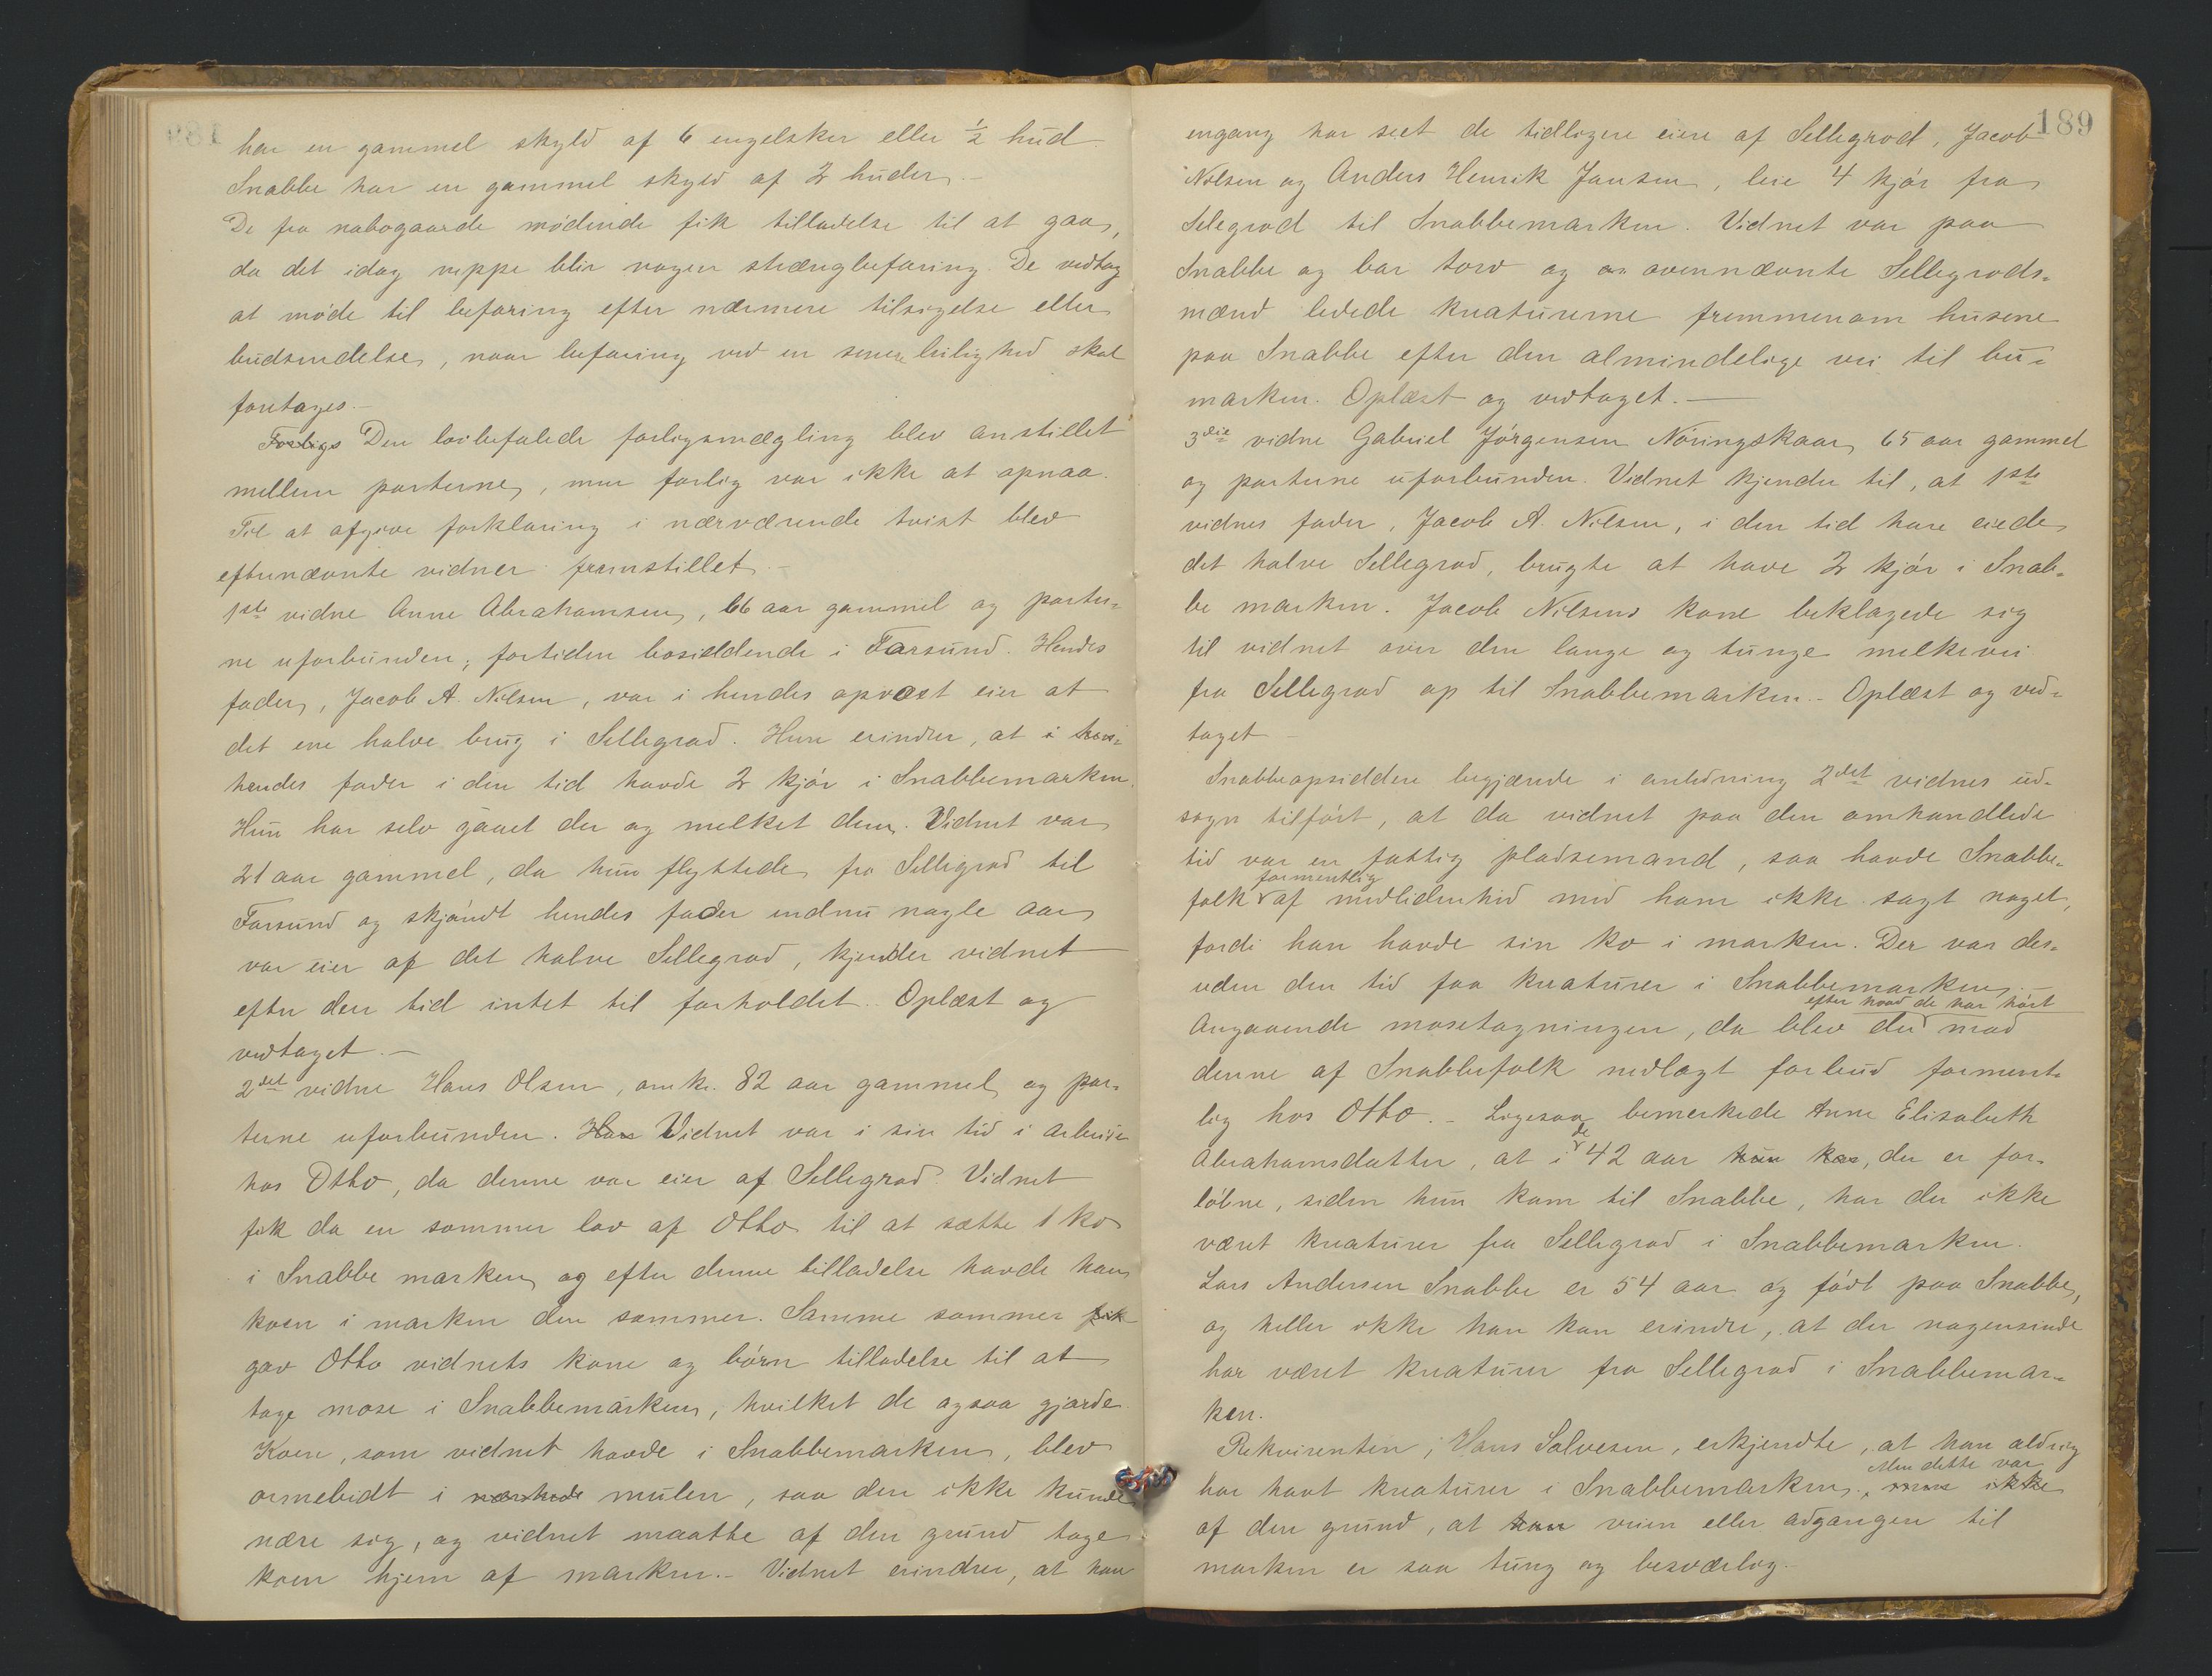 har en gammel skyld af 6 engelsker eller ½ hud
Snabbe har en gammel skyld af 2 huder.-
De fra nabogaarde mødende fik tilladelse til at gaa,
da det idag neppe blir nogen strængbefaring. De vedtog
at møde til befaring efter nærmere tilsigelse eller
budsendelse, naar befaring ved en senere leilighed skal
foretages.-
Forligs Den lovbefalede forligsmægling blev anstillet
mellem parterne, men forlig var ikke at opnaa.
Til at afgive forklaring i nærværende tvist blev
efternævnte vidner fremstillet.-
1ste vidne Anne Abrahamsen, 66 aar gammel og parter-
ne uforbunden, fortiden bosiddende i Farsund. Hendes
fader, Jacob A. Nilsen, var i hendes opvæxt eier at
det ene halve brug i Sellegrod. Hun erindrer, at i hen-
hendes fader i den tid havde 2 kjør i Snabbemarken.
Hun har selv gaaet der og melket dem. Vidnet var
21 aar gammel, da hun flyttede fra Sellegrod til
Farsund og skjøndt hendes fader endnu nogle aar
var eier af det halve Sellegrod, kjender vidnet
efter den tid intet til forholdet. Oplæst og
vedtaget.-
2det vidne Hans Olsen, omk. 82 aar gammel og par-
terne uforbunden. Han Vidnet var i sin tid i arbeide
hos Otto, da denne var eier af Sellegrod. Vidnet
fik da en sommer lov af Otto til at sætte 1 ko
i Snabbe marken og efter denne tilladelse havde han
koen i marken den sommer. Samme sommer fik
gav Otto vidnets kone og børn tilladelse til at
tage mose i Snabbemarken, hvilket de ogsaa gjorde.
Koen, som vidnet havde i Snabbemarken, blev
ormebidt i mulen, saa den ikke kunde
nære sig, og vidnet maatte af den grund tage
koen hjem af marken.- Vidnet erindrer, at han
189
engang har seet de tidligere eiere af Sellegrod, Jacob
Nilsen og Anders Henrik Jansen, leie 4 kjør fra
Selegrod til Snabbemarken. Vidnet var paa
Snabbe og bar torv og ovennævnte Sellegrods-
mænd ledede kreaturerne fremmenom husene
paa Snabbe efter den almindelige vei til bu-
marken. Oplæst og vedtaget.-
3die vidne Gabriel Jørgensen Nøringskaar, 65 aar gammel
og parterne uforbunden. Vidnet kjender til, at 1ste
vidnes fader, Jacob A. Nilsen, i den tid han eiede
det halve Sellegrod, brugte at have 2 kjør i Snab-
be marken. Jacob Nilsens kone beklagede sig
til vidnet over den lange og tunge melkevei
fra Sellegrod op til Snabbemarken.- Oplæst og ved-
taget -
Snabbeopsiddere begjærede i anledning 2det vidnes ud-
sagn tilført, at da vidnet paa den omhandlede
tid var en fattig pladsemand, saa havde Snabbe-
formentlig
folk af medlidenhed med ham ikke sagt noget,
fordi han havde sin ko i marken. Der var des-
uden den tid faa kreaturer i Snabbemarken.-
efter hvad de har hørt
Angaaende mosetagningen, da blev der mod
denne af Snabbefolk nedlagt forbud forment-
lig hos Otto.- Ligesaa bemerkede Anne Elisabeth
de
Abrahamsdatter, at i 42 aar hun kom, der er for-
løbne, siden hun kom til Snabbe, har der ikke
været kreaturer fra Sellegrod i Snabbemarken.
Lars Andersen Snabbe er 54 aar og født paa Snabbe,
og heller ikke han kan erindre, at der nogensinde
har været kreaturer fra Sellegrod i Snabbemar-
ken.
Rekvirenten, Hans Salvesen, erkjendte, at han aldrig
Men dette var
har havt kreaturer i Snabbemarken, men ikke
af den grund, at han veien eller adgangen til
marken er saa tung og besværlig.-